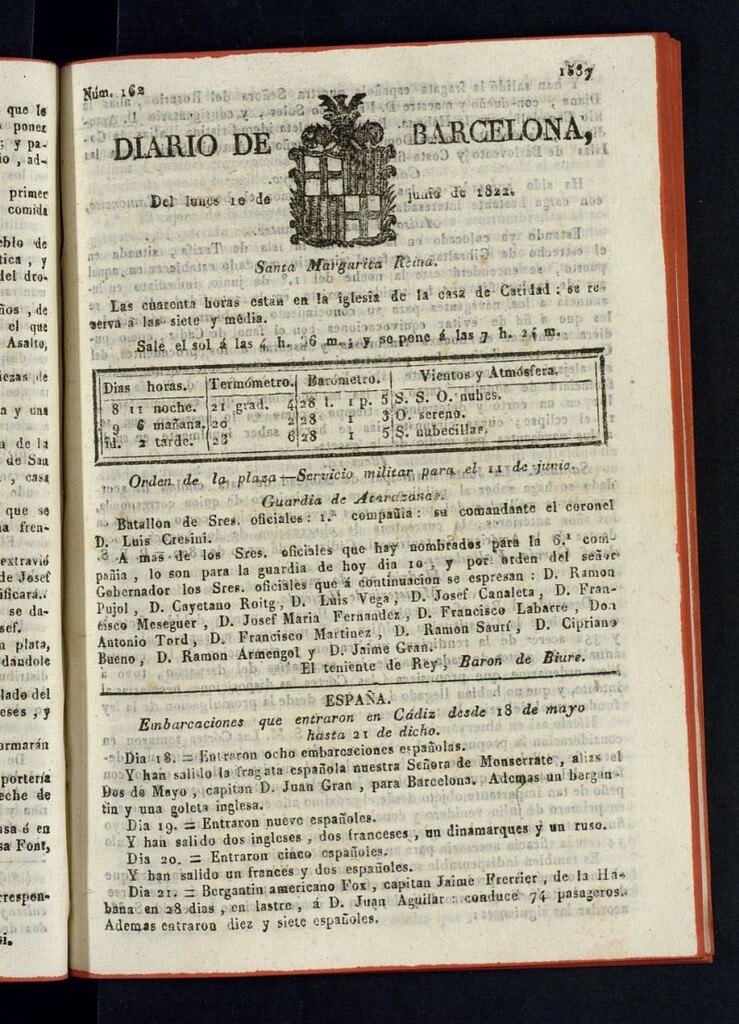 que le
poner
; y pa-
io , ad-
primer
comida
eblo de
tica , y
del dro-
ños , de
el que
Asalto,
iezas de
a y una
a de la
de San
, casa
que se
a fren-
extravió
de Josef
ificará..
se da-
sef.
n plata,
dándole
lado del
eses , y
ormarán
portería
eche de
asa ó en
sa Font,
rrespon-
Núm. 162
1537
DIARIO DE BARCELONA,
Del lunes 10 de junio de 1822.
Santa Margarita Reina.
Las cuarenta horas están en la iglesia de la casa de Caridad : se re-
serva á las siete y media.
Sale el sol á las 4 h. 36 m. ; y se pone á las 7 h. 24 m.
Dias horas. Termómetro. Barómetro. Vientos y Atmósfera.
8 11 noche. 21 grad. 4 28 l. 1 p. 5 S. S. O. nubes.
9 6 mañana. 20 2 28 1 3 O. sereno.
id. 2 tarde. 23 6 28 1 5 S. nubecillas.
Orden de la plaza.—Servicio militar para el 11 de junio.
Guardia de Atarazanas.
Batallon de Sres. oficiales : 1.ª compañia : su comandante el coronel
D. Luis Cresini.
A mas de los Sres. oficiales que hay nombrados para la 6.ª com-
pañia , lo son para la guardia de hoy dia 10 , y por orden del señor
Gobernador los Sres. oficiales que á continuacion se espresan : D. Ramon
Pujol , D. Cayetano Roitg , D. Luis Vega , D. Josef Canaleta , D. Fran-
cisco Meseguer , D. Josef Maria Fernandez , D. Francisco Labarre , Don
Antonio Tord , D. Francisco Martinez , D. Ramon Saurí , D. Cipriano
Bueno , D. Ramon Armengol y D. Jaime Gran.
El teniente de Rey, Baron de Biure.
ESPAÑA.
Embarcaciones que entraron en Cádiz desde 18 de mayo
hasta 21 de dicho.
Dia 18. = Entraron ocho embarcaciones españolas.
Y han salido la fragata española nuestra Señora de Monserrate , alias el
Dos de Mayo , capitan D. Juan Gran , para Barcelona. Ademas un bergan-
tin y una goleta inglesa.
Dia 19. = Entraron nueve españoles.
Y han salido dos ingleses , dos franceses , un dinamarques y un ruso.
Dia 20. = Entraron cinco españoles.
Y han salido un frances y dos españoles.
Dia 21. = Bergantin americano Fox , capitan Jaime Frerrier , de la Ha-
bana en 28 dias , en lastre , á D. Juan Aguilar : conduce 74 pasageros.
Ademas entraron diez y siete españoles.